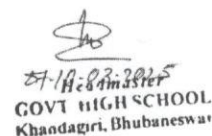 Headmaster
GOVT HIGH SCHOOL
Khandagiri, Bhubaneswar